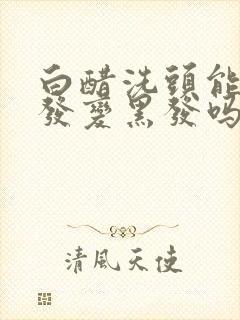 白醋洗頭能
發變黑發嗎
清風天使